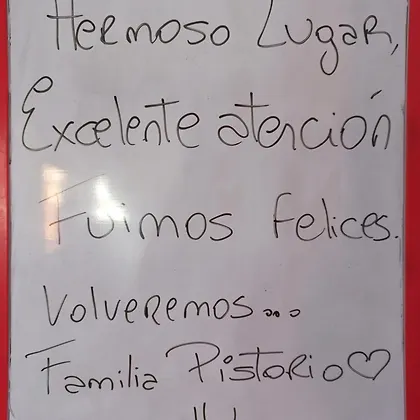 Hermoso Lugar,
Excelente atención
Fuimos felices.
Volveremos...
Familia Pistorio♡